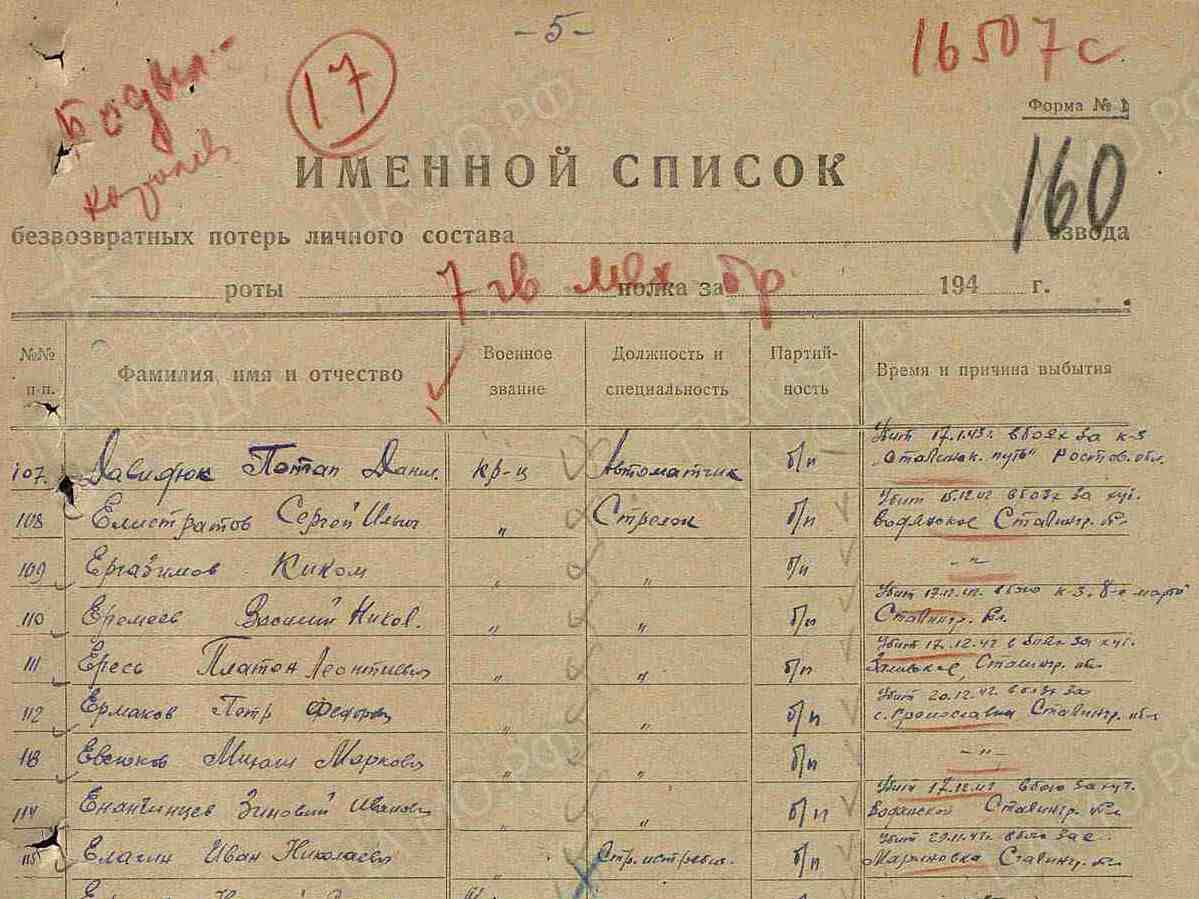 - 5 -
16507с
17
Форма № 1
160
ИМЕННОЙ СПИСОК
безвозвратных потерь личного состава взвода
роты 7 гв мех полка за бр 194 г.
№№ п-п. Фамилия, имя и отчество Военное звание Должность и специальность Партий-ность Время и причина выбытия
107. Давидюк Потап Данил. кр-ц Автоматчик б/п Убит 17.1.43г. в боях за к-з
"Сталинск. путь" Ростов. обл.
108 Елистратов Сергей Ильич " Стрелок б/п Убит 15.12.42 в боях за хут.
Водянское Сталингр. обл.
109 Ергазимов Киком " " б/п - " -
110 Еремеев Василий Никол. " " б/п Убит 17.12.42. в бою к-з. 8-е марта
Сталингр. обл.
111 Ересь Платон Леонтиевич " " б/п Убит 17.12.42 в боях за хут.
Сталингр. обл.
112 Ермаков Петр Федоров " " б/п Убит 20.12.42 в боях за
с. Громославка Сталингр. обл.
113 Евсюков Михаил Маркович " " б/п - " -
114 Зиновий Иванович " " б/п Убит 17.12.42 в бою за хут.
Водянский Сталингр. обл.
115 Елагин Иван Николаевич " Стр. истребит. б/п Убит 29.11.42г. в боях за с.
Мариновка Сталингр. обл.